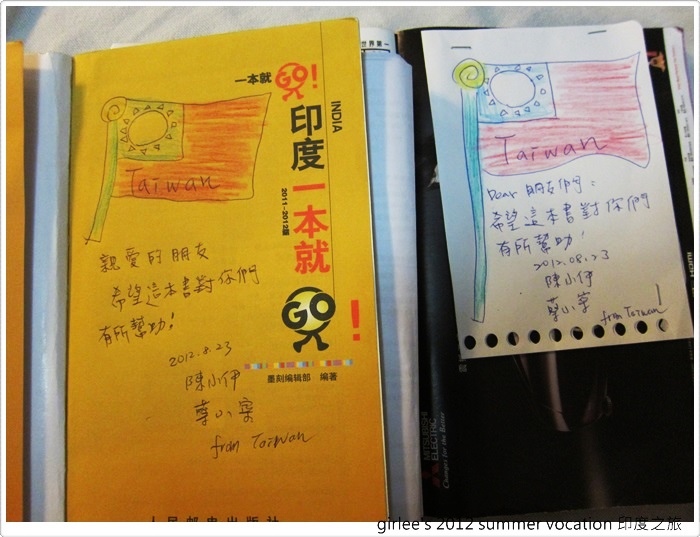 一本就
GO!
INDIA
印度
一本就
2011-2012版
GO!
墨刻编辑部 编著
人民邮电出版社
Taiwan
親愛的朋友
希望這本書對你們
有所幫助!
2012.8.23
陳小伊
from Taiwan
世界第一
Taiwan
Dear 朋友們:
希望這本書對你們
有所幫助!
2012.08.23
陳小伊
from Taiwan
MITSUBISHI
ELECTRIC
Changes for the Better
girlee's 2012 summer vocation 印度之旅